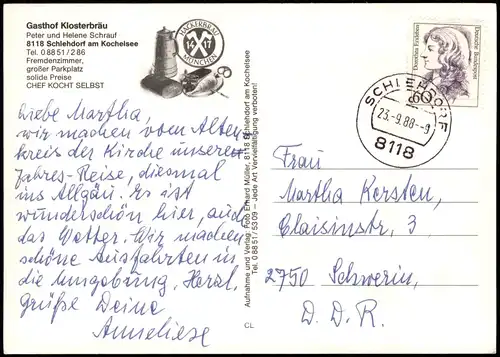 Gasthof Klosterbräu
Peter und Helene Schrauf
8118 Schlehdorf am Kochelsee
Tel. 0 88 51 / 2 86
Fremdenzimmer,
großer Parkplatz
solide Preise
CHEF KOCHT SELBST
HACKERBRÄU
14 17
MÜNCHEN
Liebe Martha,
wir machen vom Alten
kreis der Kirche unsere
Jahres-Reise, diesmal
ins Allgäu. Es ist
wunderschön hier, auch
das Wetter. Wir machen
schöne Ausfahrten in
die Umgebung. Herzl.
Grüße Deine
Anneliese
Aufnahme und Verlag: Foto Erhard Müller, 8118 Schlehdorf am Kochelsee
Tel. 0 88 51 / 53 09 – Jede Art Vervielfältigung verboten!
CL
Dorothea Erxleben
Deutsche Bundespost
60
SCHLEHDORF
23.-9.88--9
8118
Frau
Martha Kersten,
Olaisinstr. 3
2750 Schwerin,
D. D. R.